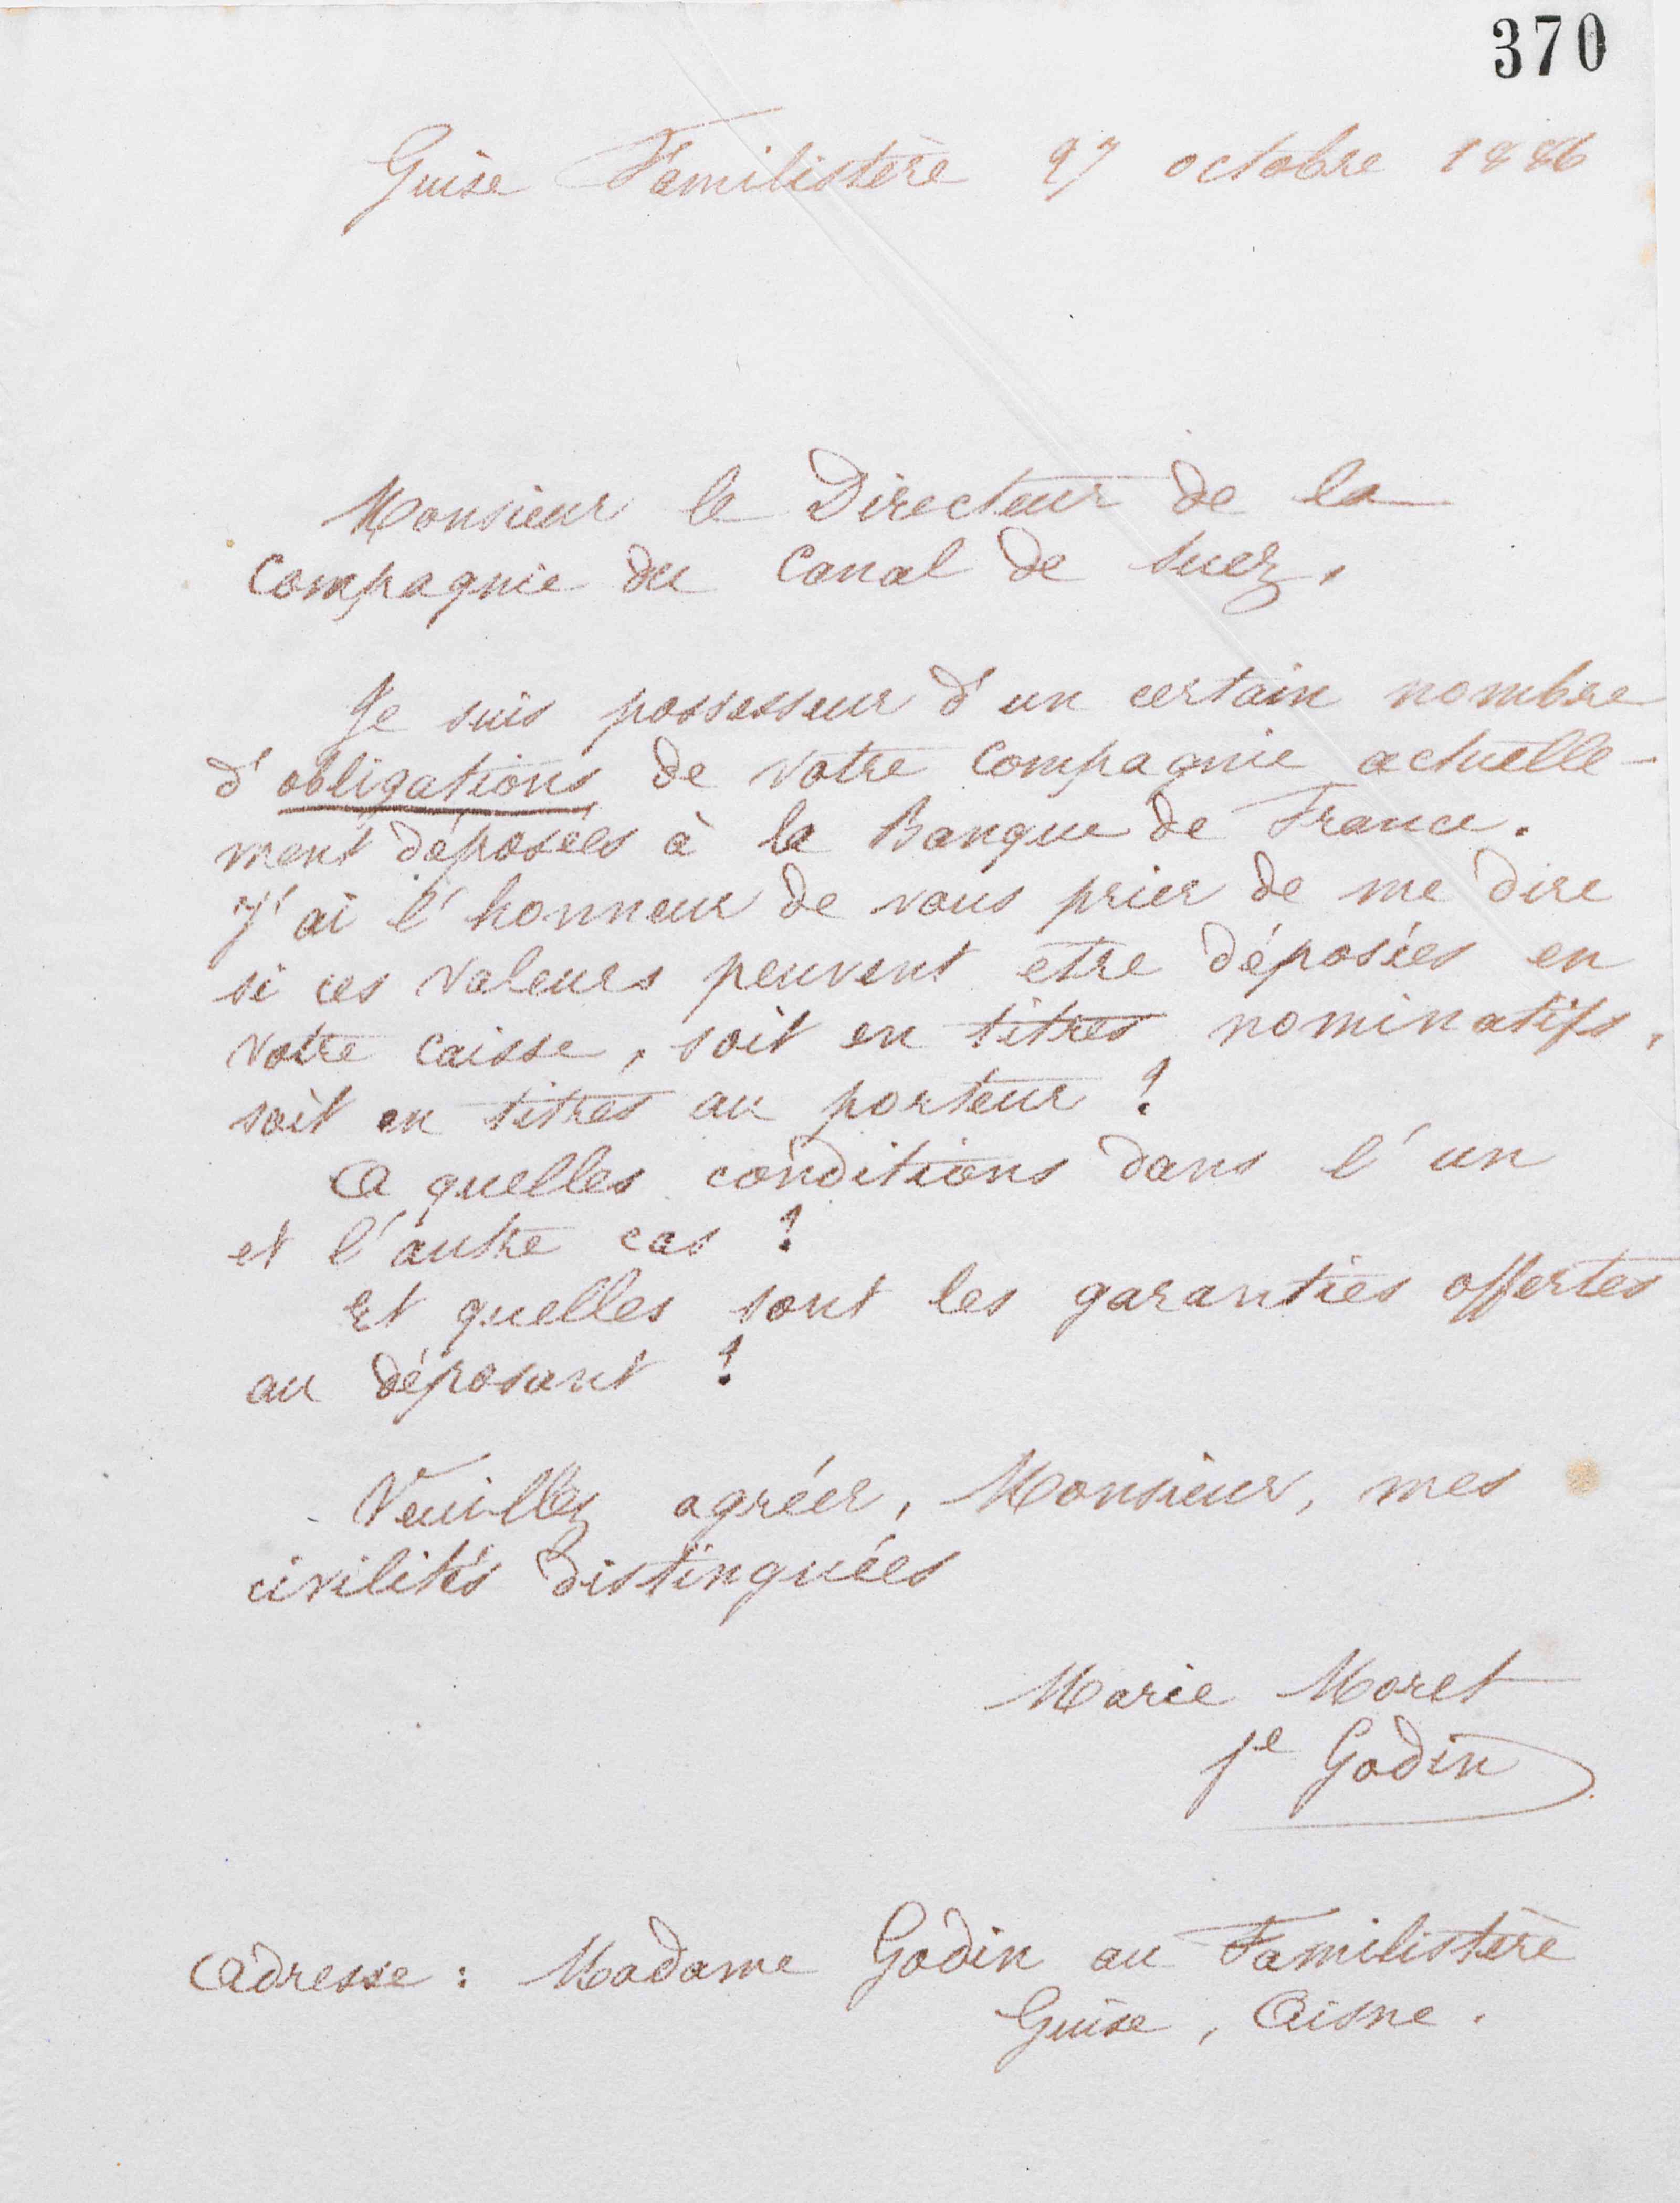 370
Guise Familistère 27 octobre 1886
Monsieur le Directeur de la
Compagnie du Canal de Suez,
Je suis possesseur d'un certain nombre
d'obligations de votre Compagnie actuelle-
ment déposées à la Banque de France.
J'ai l'honneur de vous prier de me dire
si ces valeurs peuvent etre déposées en
votre caisse, soit en titres nominatifs,
soit en titres au porteur ?
A quelles conditions dans l'un
et l'autre cas ?
Et quelles sont les garanties offertes
au déposant ?
Veuillez agréer, Monsieur, mes
civilités distinguées
Marie Moret
fe Godin
Adresse : Madame Godin au Familistère
Guise, Aisne.